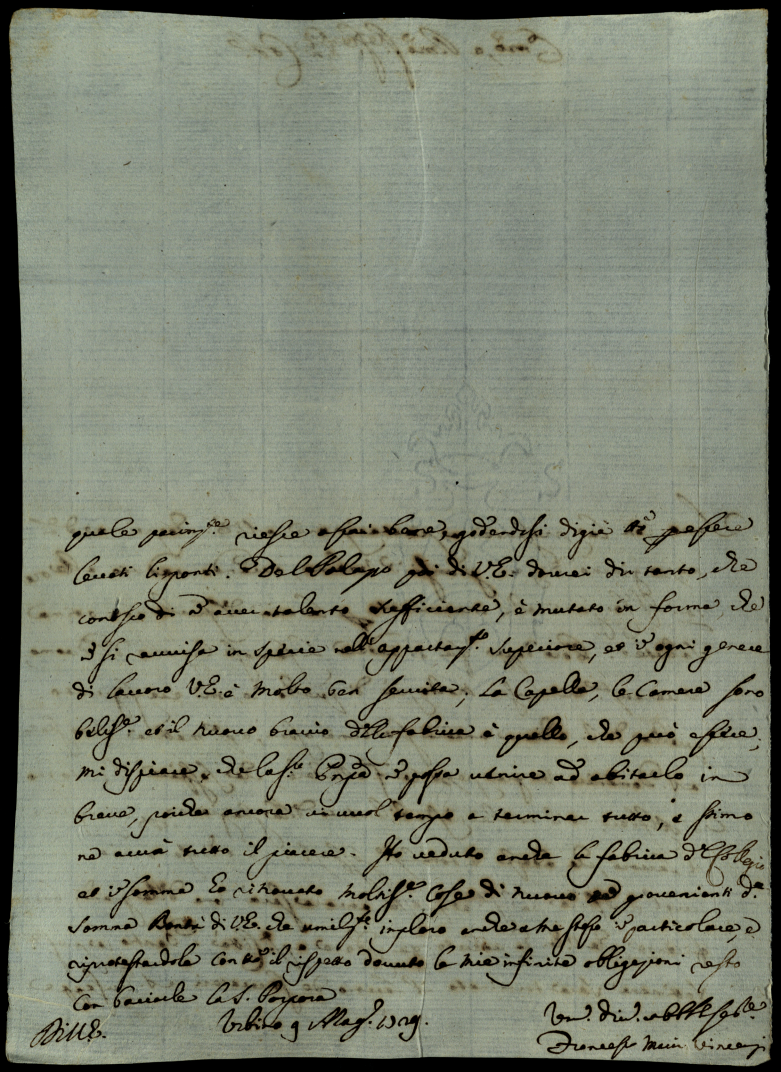 quale parim.te riesce assai bene, godendosi digià
levati li ponti. Del Palazzo poi di V.E. dovrei dir tanto, che
conosco di nō aver talento sufficiente, è mutato in forma, che
nō si ravvisa in specie nell' appartam.to superiore, et in ogni genere
di lavoro V.E. è molto ben servita; La Capella, le Camere sono
belliss.e et il nuovo braccio della fabrica è quello, che può essere,
mi dispiace, che la S.ia nō possa venire ad abitarlo in
breve, poiche ancora vi vuol tempo a terminar tutto, e stimo
ne avrà tutto il piacere. Ho veduto anche la fabrica del Collegio
et in somma ho ritrovato moltiss.e cose di nuovo provenienti da
somma Bontà di V.E. che umilm.te imploro anche a me stesso in particolare, e
riprotestandole con tt.o il rispetto dovuto le mie infinite obligazioni resto
con baciarle la S. Porpora
Di V.E.
Urbino 9 Mag.o 1729.
Um.o div.o obb.mo se.re
Francesco Maria Vincenzi